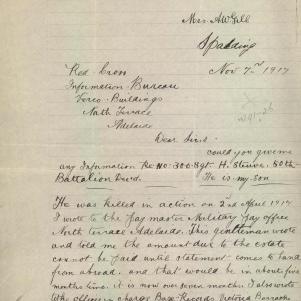 Mrs. A. W. Gill
Spalding
Nov 7th 1917
Red Cross
Information Bureau
Verco Buildings
North Terrace
Adelaide
Dear Sirs
could you give me
any Information Re No 306 Sgt. H. 50th
Battalion He is my son
He was killed in action on 2nd April 1917
I wrote to the pay master Military pay office
North Terrace Adelaide. This gentleman wrote
and told me the amount due to the estate
can not be paid until statement comes to hand
from abroad. and that would be in about five
months time. it is now over seven months. I also wrote
the officer in charge Base Records Victoria Barracks